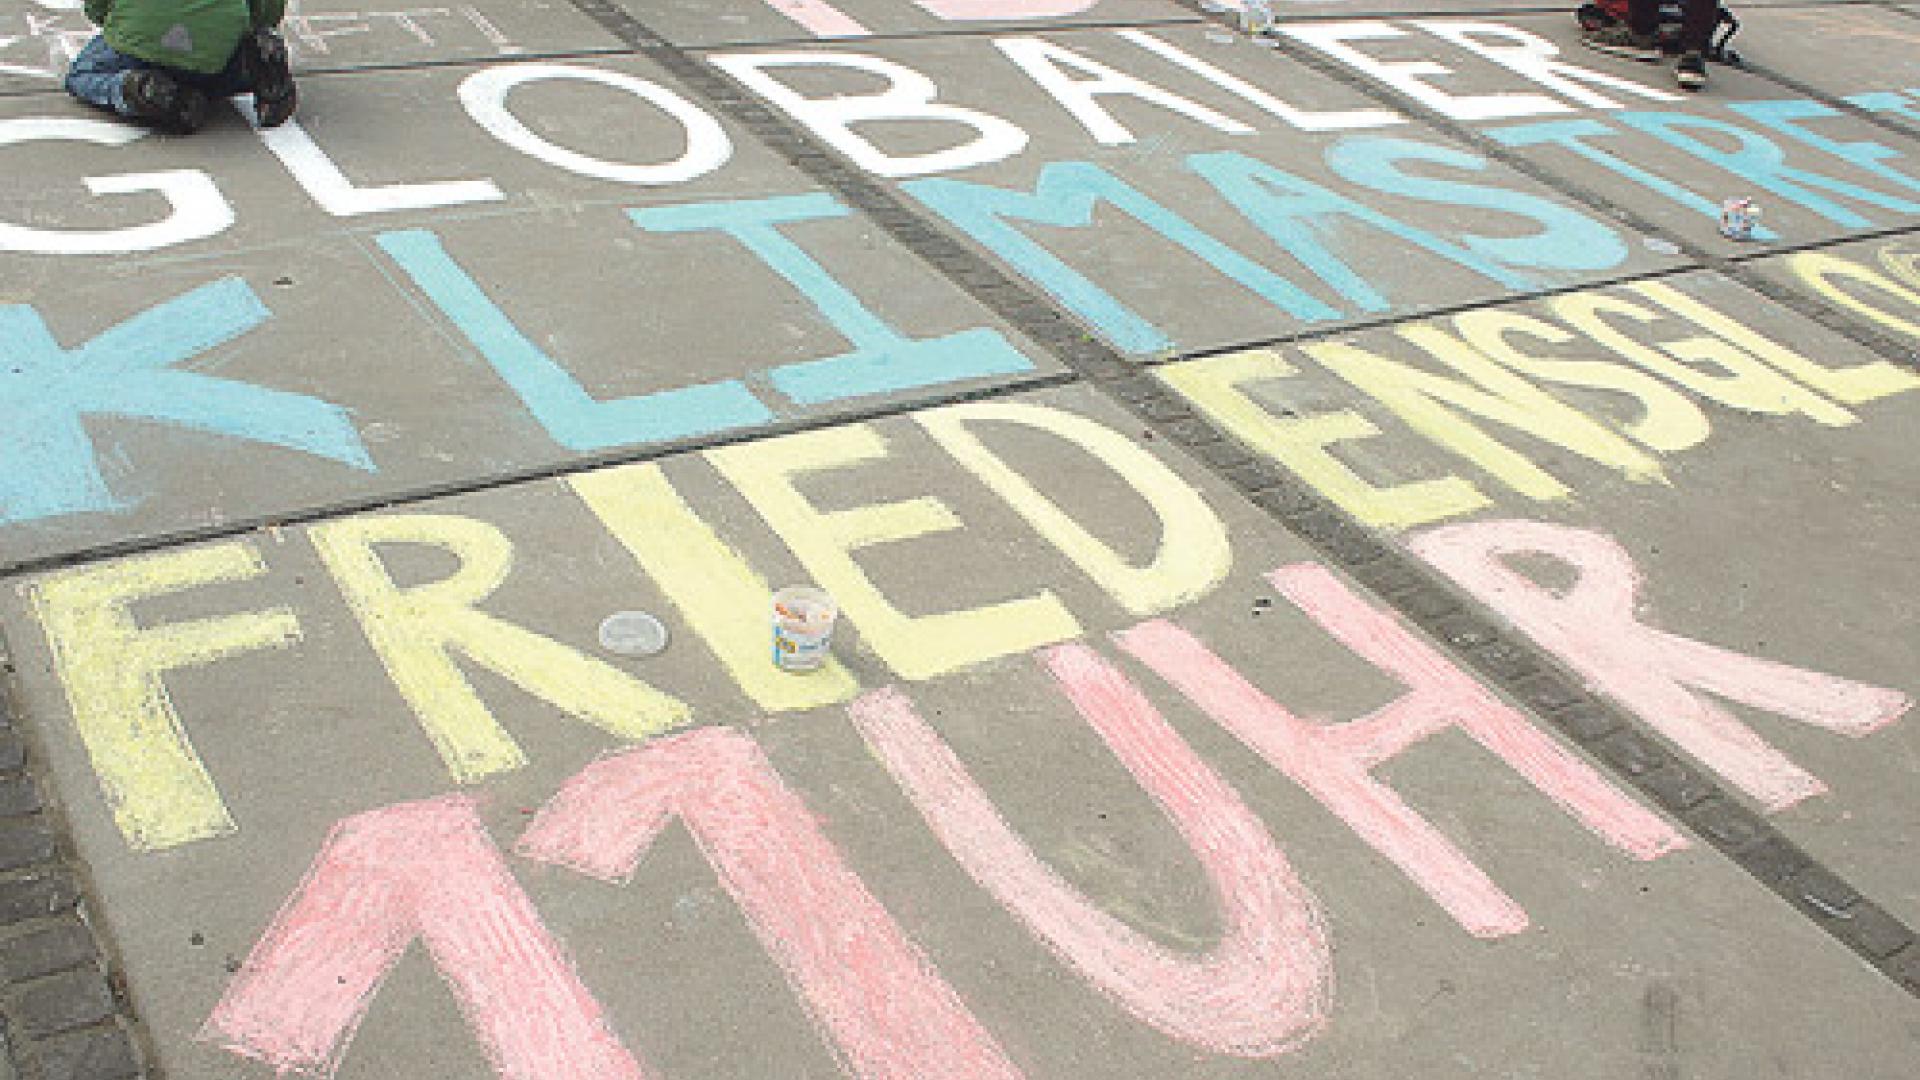 GLOBALER
KLIMASTRE
FRIEDENSGLO
11 UHR